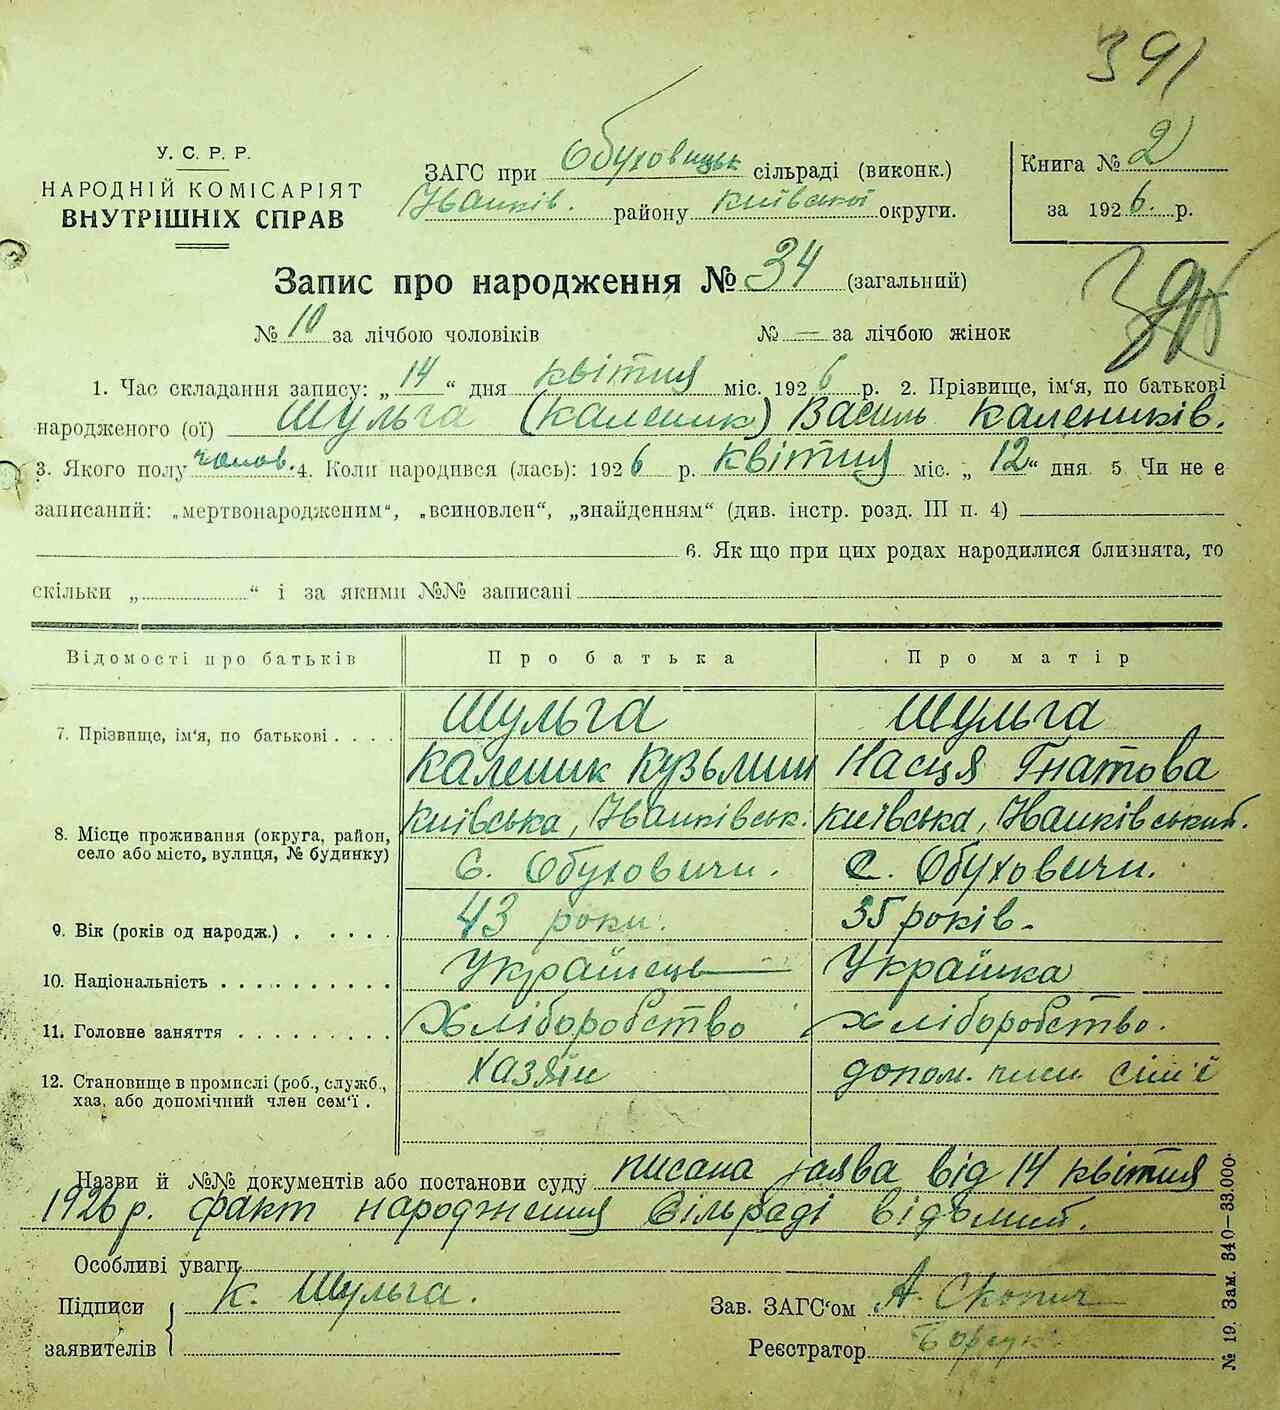 391
У. С. Р. Р.
НАРОДНІЙ КОМІСАРІЯТ
ВНУТРІШНІХ СПРАВ
ЗАГС при Обуховицьк сільраді (виконк.)
Іванків. району Київської округи.
Книга № 2
за 1926 р.
Запис про народження № 34 (загальний)
№ 10 за лічбою чоловіків № — за лічбою жінок
1. Час складання запису: „14“ дня квітня міс. 1926 р. 2. Прізвище, ім'я, по батькові
народженого (ої) Шульга (Каленик) Василь Калеників.
3. Якого полу чолов. 4. Коли народився (лась): 1926 р. квітня міс. „12“ дня 5 Чи не є
записаний: „мертвонародженим“, „всиновлен“, „знайденням“ (див. інстр. розд. III п. 4)
6. Як що при цих родах народилися близнята, то
скільки „ “ і за якими №№ записані
Відомості про батьків Про батька Про матір
7. Прізвище, ім'я, по батькові . . . . Шульга Шульга
Каленик Кузьмин Насця Гнатова
8. Місце проживання (округа, район, Київська, Іванківськ. Київська, Іванківський.
село або місто, вулиця, № будинку) С. Обуховичи. с. Обуховичи.
9. Вік (років од народж.) . . . . . 43 роки. 35 років.
10. Національність . . . . . . . . . . Українець Українка
11. Головне заняття . . . . . . . . . Хліборобство Хліборобство.
12. Становище в промислі (роб., служб., хазяїн допом. сім'ї
хаз. або допомічний член сем'ї .
Назви й №№ документів або постанови суду писана заява від 14 квітня
1926 р. факт народження сільраді відомий.
Особливі уваги
Підписи К. Шульга. Зав. ЗАГС'ом А. Скопич
заявителів Реєстратор
№ 19. Зам. 340–33.000